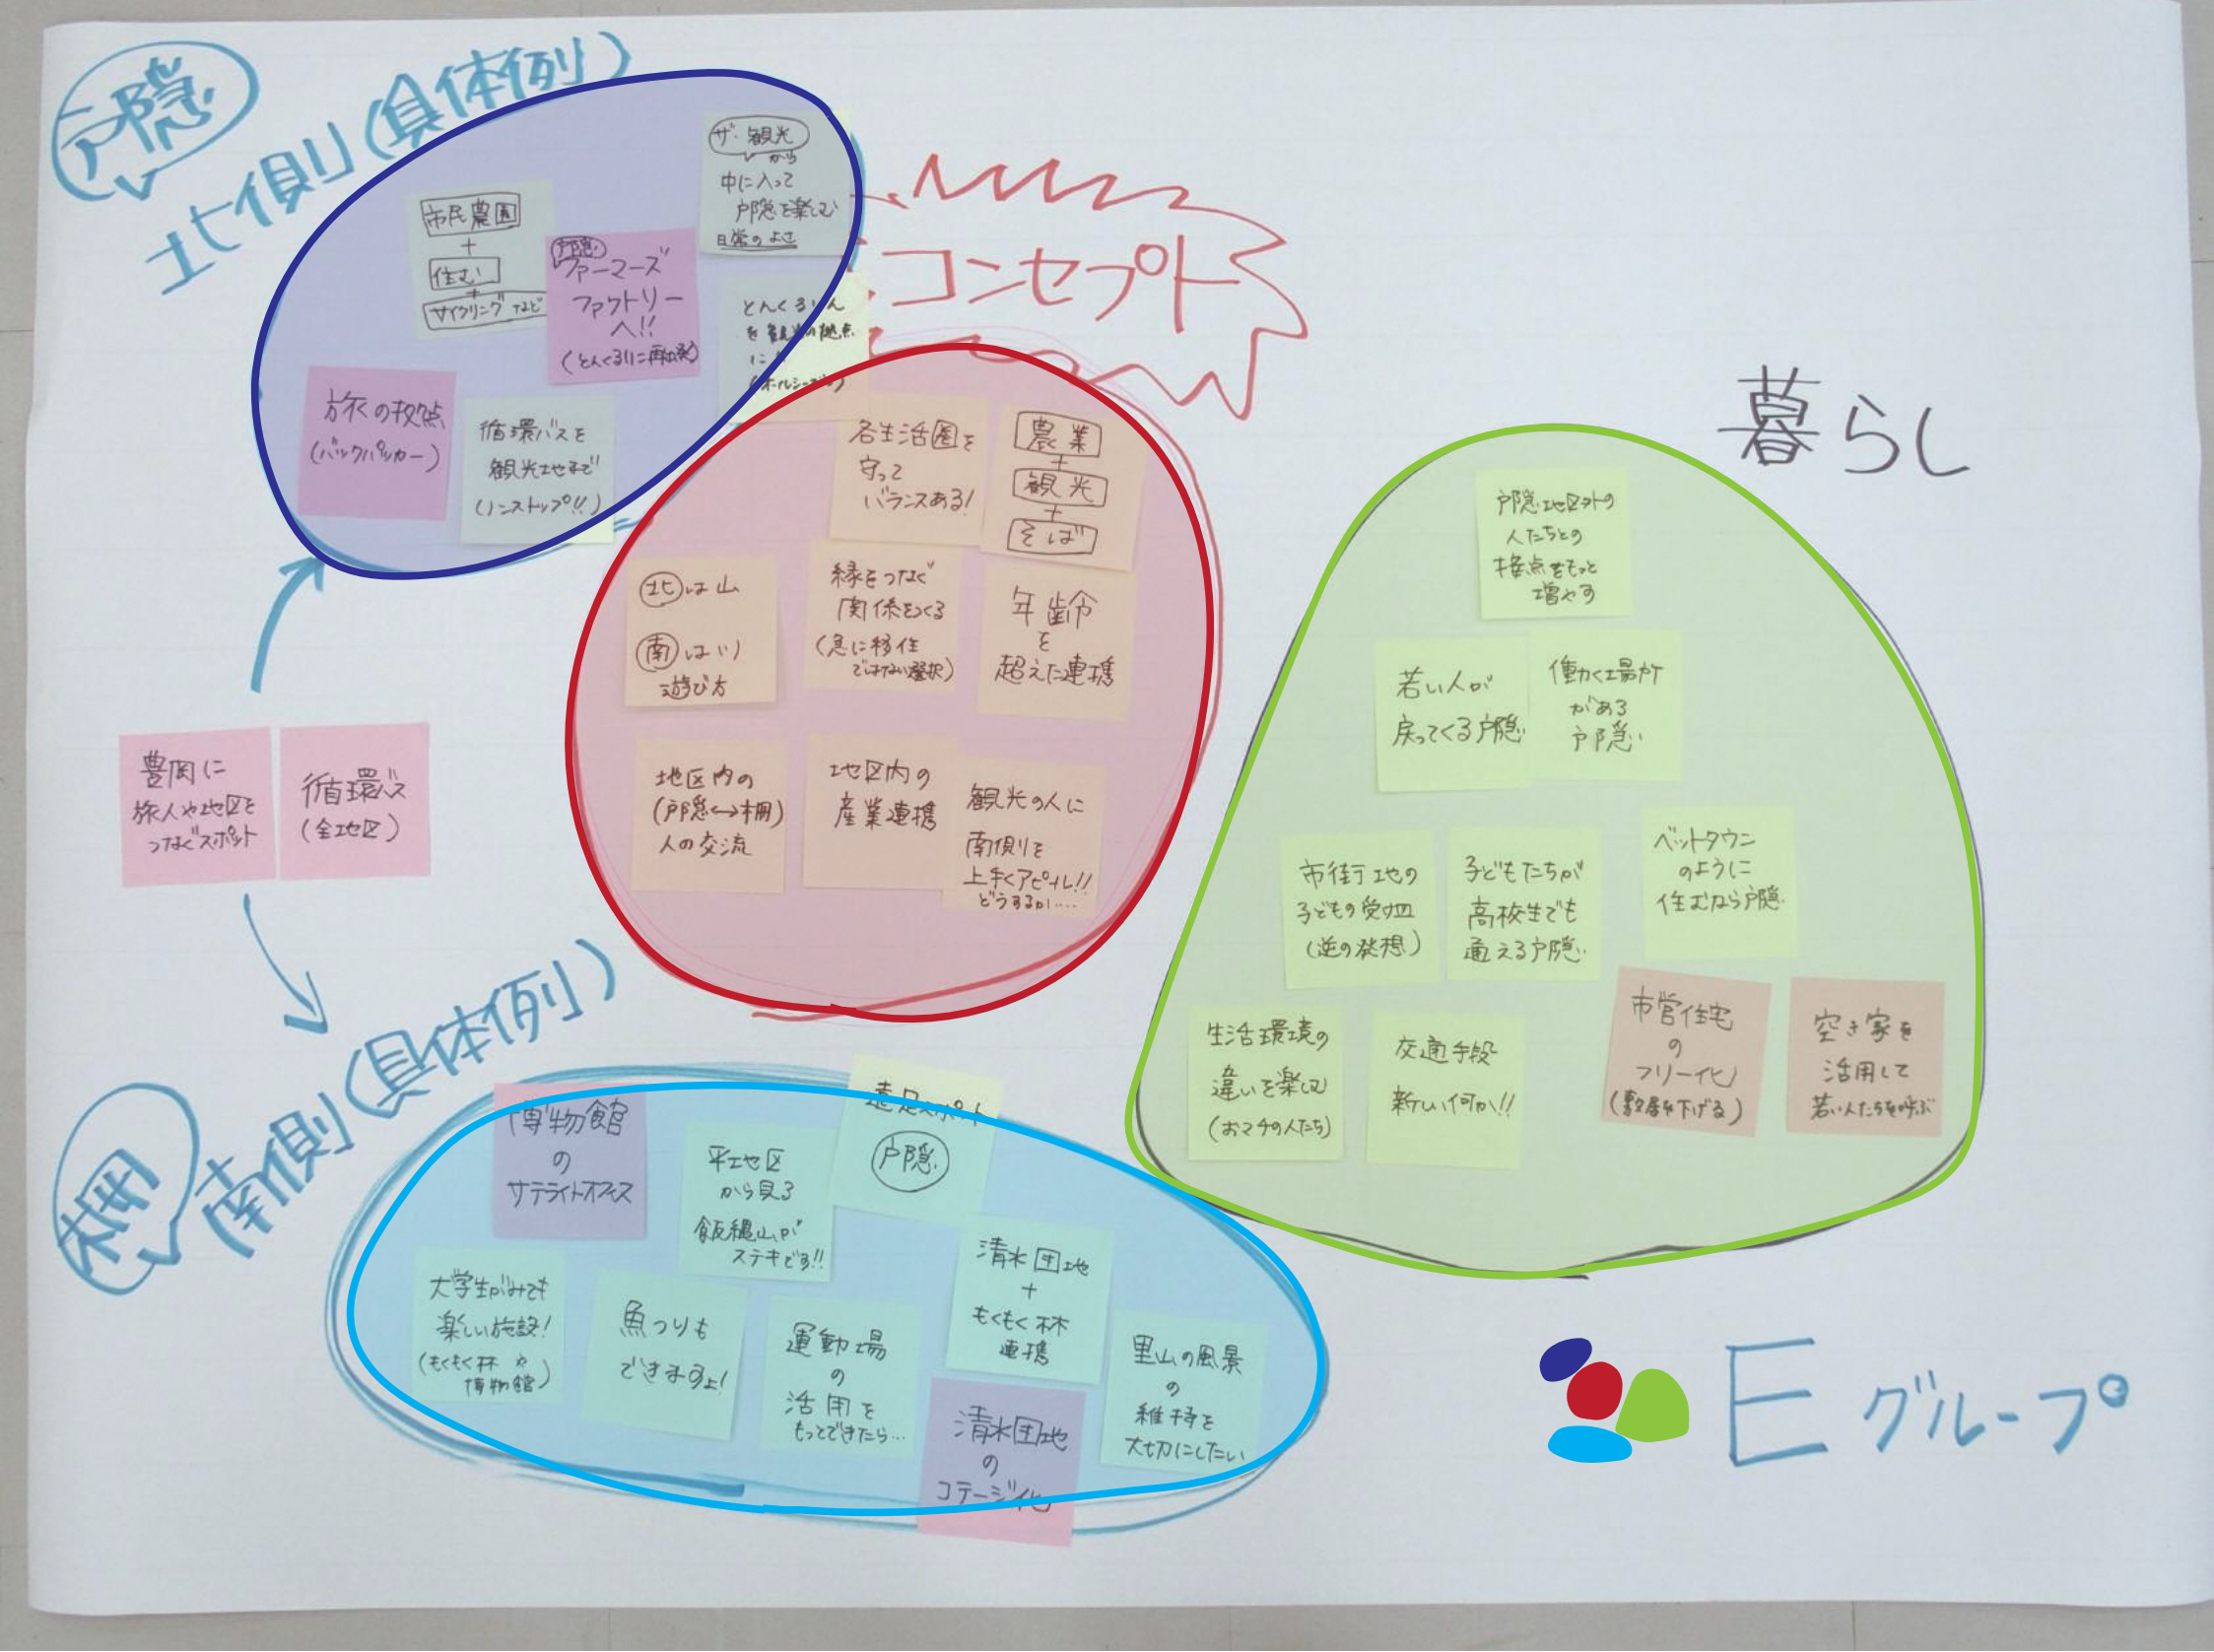 戸隠
北側(具体例)
ザ・観光
から
中に入って
戸隠を楽しむ
日常のよさ
市民農園
+
住む
+
サイクリングなど
戸隠
ファーマーズ
ファクトリー
へ!!
とんくるりん
を観光の拠点
に
(オールシーズン)
旅の拠点
(バックパッカー)
循環バスを
観光地まで
(ノンストップ!!)
コンセプト
各生活圏を
守って
バランスある!
農業
+
観光
+
そば
北は山
南は川
遊び方
縁をつなぐ
関係をつくる
(急に移住
ではない選択)
年齢
を
超えた連携
地区内の
(戸隠↔柵)
人の交流
地区内の
産業連携
観光の人に
南側を
上手くアピール!!
どうするか....
豊岡に
旅人や地区を
つなぐスポット
循環バス
(全地区)
暮らし
戸隠地区外の
人たちとの
接点をもっと
増やす
若い人が
戻ってくる戸隠
働く場所
がある
戸隠
市街地の
子どもの受け皿
(逆の発想)
子どもたちが
高校生でも
通える戸隠
ベットタウン
のように
住むなら戸隠
生活環境の
違いを楽しむ
(おマチの人たち)
交通手段
新しい何か!!
市営住宅
の
フリー化
(敷居を下げる)
空き家を
活用して
若い人たちを呼ぶ
柵
南側(具体例)
博物館
の
サテライトオフィス
平地区
から見る
飯縄山が
ステキです!!
遠足スポット
戸隠
大学生がみても
楽しい施設!
(もくもく林や
博物館)
魚つりも
できますよ!
運動場
の
活用を
もってできたら...
清水団地
+
もくもく林
連携
清水団地
の
コテージ化
里山の風景
の
維持を
大切にしたい
Eグループ